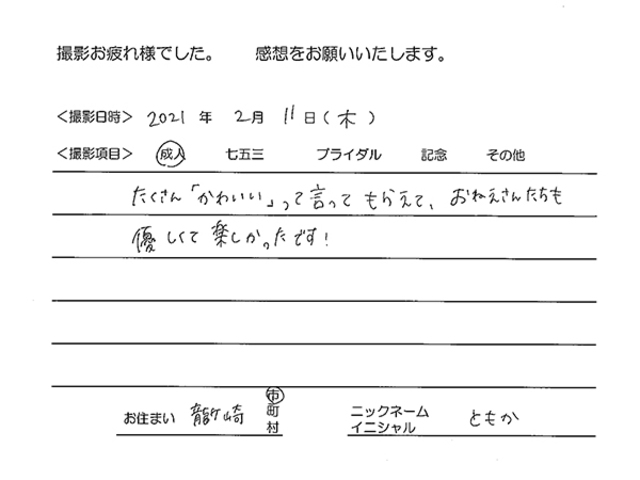 撮影お疲れ様でした。　感想をお願いいたします。
＜撮影日時＞ 2021 年 2月 11日（木）
＜撮影項目＞ 成人 七五三 ブライダル 記念 その他
たくさん「かわいい」って言ってもらえて、おねえさんたちも
優しくて楽しかったです！
お住まい 龍ケ崎 市町村
ニックネーム イニシャル ともか